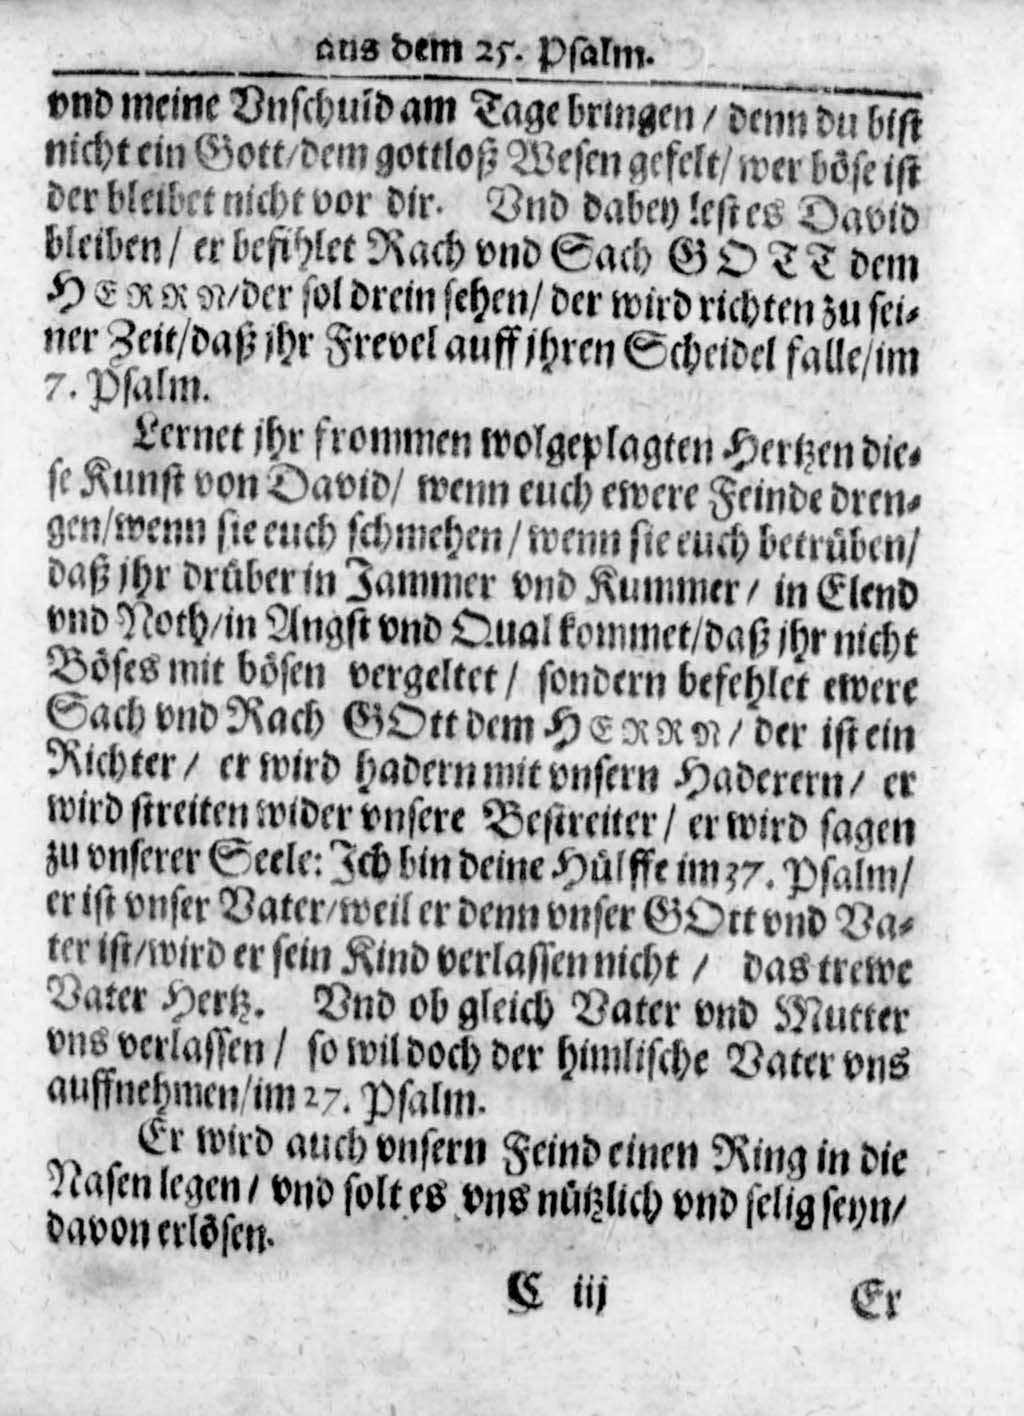 aus dem 25. Psalm.
vnd meine Vnschuld am Tage bringen / denn du bist
nicht ein Gott/dem gottloß Wesen gefelt/ wer böse ist
der bleibet nicht vor dir. Vnd dabey lest es David
bleiben / er befihlet Rach vnd Sach GOTT dem
HERRN/der sol drein sehen/ der wird richten zu sei-
ner Zeit/daß jhr Frevel auff jhren Scheidel falle/im
7. Psalm.
Lernet jhr frommen wolgeplagten Hertzen die-
se Kunst von David/ wenn euch ewere Feinde dren-
gen/wenn sie euch schmehen / wenn sie euch betrüben/
daß jhr drüber in Jammer vnd Kummer / in Elend
vnd Noth/in Angst vnd Qual kommet/daß jhr nicht
Böses mit bösen vergeltet / sondern befehlet ewere
Sach vnd Rach GOtt dem HERRN / der ist ein
Richter / er wird hadern mit vnsern Haderern / er
wird streiten wider vnsere Bestreiter / er wird sagen
zu vnserer Seele: Ich bin deine Hülffe im 37. Psalm/
er ist vnser Vater/weil er denn vnser GOtt vnd Va-
ter ist/wird er sein Kind verlassen nicht / das trewe
Vater Hertz. Vnd ob gleich Vater vnd Mutter
vns verlassen / so wil doch der himlische Vater vns
auffnehmen/im 27. Psalm.
Er wird auch vnsern Feind einen Ring in die
Nasen legen / vnd solt es vns nützlich vnd selig seyn/
davon erlösen.
C iij Er